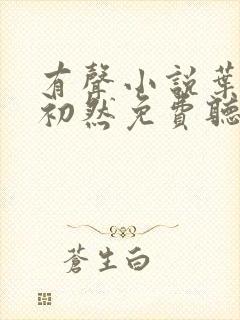 有聲小說葉
初然免費聽
蒼生白